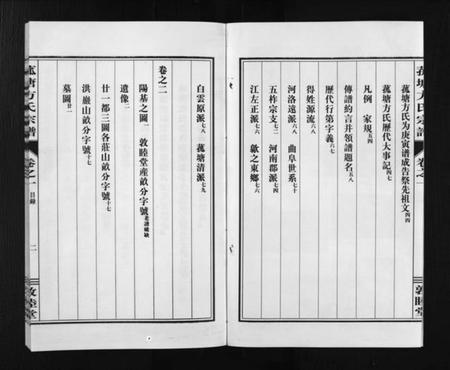 菰塘方氏宗譜
菰塘方氏为庚寅谱成告祭先祖文四四
菰塘方氏歷代大事記四七
凡例 家規五四
傳譜約言并領譜題名五八
歷代行第字義六七
得姓源流六八
河洛遠派六九 曲阜世系七十
五柞宗支七二 河南郡派七四
江左正派七六 歙之東鄉七六
白雲原派七八 菰塘清派七九
卷之二
陽基之圖一 敦睦堂産畝分字號老譜破缺
遺像二
廿一都三圖各莊山畝分字號十七
洪巖山畝分字號十七
墓圖廿二
菰塘方氏宗譜 卷之一 目錄 二 敦睦堂